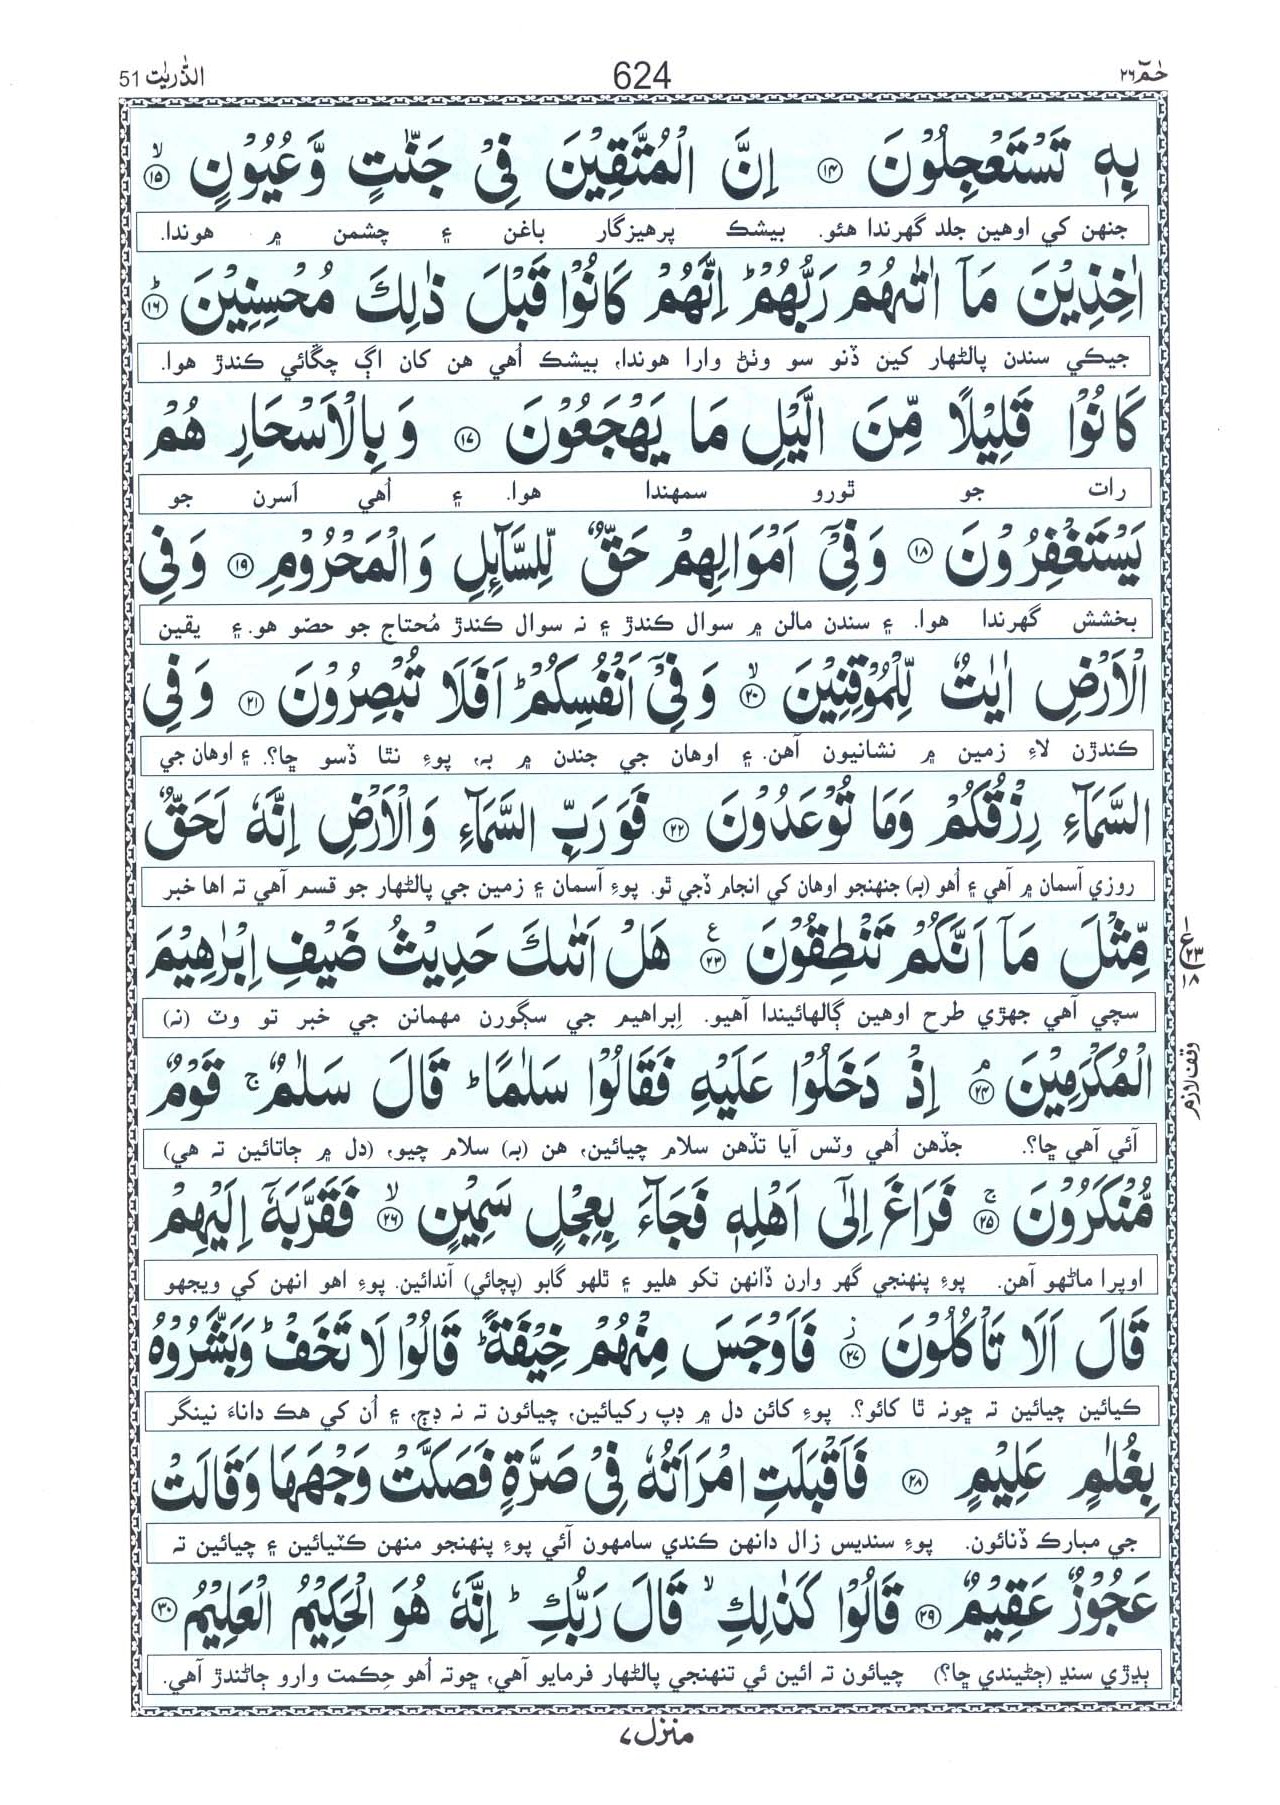 حٰمٓ ٢٦ 624 الذّٰريٰت 51
بِهٖ تَسْتَعْجِلُوْنَ ۝١٤ اِنَّ الْمُتَّقِيْنَ فِيْ جَنّٰتٍ وَّعُيُوْنٍ ۝١٥ۙ
جنهن کي اوهين جلد گهرندا هئو. بيشڪ پرهيزگار باغن ۽ چشمن ۾ هوندا.
اٰخِذِيْنَ مَآ اٰتٰىهُمْ رَبُّهُمْ ؕ اِنَّهُمْ كَانُوْا قَبْلَ ذٰلِكَ مُحْسِنِيْنَ ۝١٦ؕ
جيڪي سندن پالڻهار کين ڏنو سو وٺڻ وارا هوندا، بيشڪ اُهي هن کان اڳ چڱائي ڪندڙ هوا.
كَانُوْا قَلِيْلًا مِّنَ الَّيْلِ مَا يَهْجَعُوْنَ ۝١٧ وَبِالْاَسْحَارِ هُمْ
رات جو ٿورو سمهندا هوا. ۽ اُهي اَسرن جو
يَسْتَغْفِرُوْنَ ۝١٨ وَفِيْٓ اَمْوَالِهِمْ حَقٌّ لِّلسَّآئِلِ وَالْمَحْرُوْمِ ۝١٩ وَفِي
بخشش گهرندا هوا. ۽ سندن مالن ۾ سوال ڪندڙ ۽ نہ سوال ڪندڙ مُحتاج جو حصّو هو. ۽ يقين
الْاَرْضِ اٰيٰتٌ لِّلْمُوْقِنِيْنَ ۝٢٠ۙ وَفِيْٓ اَنْفُسِكُمْ ؕ اَفَلَا تُبْصِرُوْنَ ۝٢١ وَفِي
ڪندڙن لاءِ زمين ۾ نشانيون آهن. ۽ اوهان جي جندن ۾ بہ، پوءِ نٿا ڏسو ڇا؟. ۽ اوهان جي
السَّمَآءِ رِزْقُكُمْ وَمَا تُوْعَدُوْنَ ۝٢٢ فَوَرَبِّ السَّمَآءِ وَالْاَرْضِ اِنَّهٗ لَحَقٌّ
روزي آسمان ۾ آهي ۽ اُهو (بہ) جنهنجو اوهان کي انجام ڏجي ٿو. پوءِ آسمان ۽ زمين جي پالڻهار جو قسم آهي تہ اها خبر
مِّثْلَ مَآ اَنَّكُمْ تَنْطِقُوْنَ ۝٢٣ۧ هَلْ اَتٰىكَ حَدِيْثُ ضَيْفِ اِبْرٰهِيْمَ
ع ٢٣ ١٨
سچي آهي جهڙي طرح اوهين ڳالهائيندا آهيو. اِبراهيم جي سڳورن مهمانن جي خبر تو وٽ (نہ)
الْمُكْرَمِيْنَ ۝٢٤ۘ اِذْ دَخَلُوْا عَلَيْهِ فَقَالُوْا سَلٰمًا ؕ قَالَ سَلٰمٌ ۚ قَوْمٌ
وقف لازم
آئي آهي ڇا؟. جڏهن اُهي وٽس آيا تڏهن سلام چيائين، هن (بہ) سلام چيو، (دل ۾ ڄاتائين تہ هي)
مُّنْكَرُوْنَ ۝٢٥ۚ فَرَاغَ اِلٰٓى اَهْلِهٖ فَجَآءَ بِعِجْلٍ سَمِيْنٍ ۝٢٦ۙ فَقَرَّبَهٗٓ اِلَيْهِمْ
اوپرا ماڻهو آهن. پوءِ پنهنجي گهر وارن ڏانهن تکو هليو ۽ ٿلهو گابو (پچائي) آندائين. پوءِ اهو انهن کي ويجهو
قَالَ اَلَا تَاْكُلُوْنَ ۝٢٧ؗ فَاَوْجَسَ مِنْهُمْ خِيْفَةً ؕ قَالُوْا لَا تَخَفْ ؕ وَبَشَّرُوْهُ
ڪيائين چيائين تہ ڇونہ ٿا کائو؟. پوءِ کائن دل ۾ ڊپ رکيائين، چيائون تہ نہ ڊڄ، ۽ اُن کي هڪ داناءَ نينگر
بِغُلٰمٍ عَلِيْمٍ ۝٢٨ فَاَقْبَلَتِ امْرَاَتُهٗ فِيْ صَرَّةٍ فَصَكَّتْ وَجْهَهَا وَقَالَتْ
جي مبارڪ ڏنائون. پوءِ سنديس زال دانهن ڪندي سامهون آئي پوءِ پنهنجو منهن ڪٽيائين ۽ چيائين تہ
عَجُوْزٌ عَقِيْمٌ ۝٢٩ قَالُوْا كَذٰلِكِ ۙ قَالَ رَبُّكِ ؕ اِنَّهٗ هُوَ الْحَكِيْمُ الْعَلِيْمُ ۝٣٠
ٻڍڙي سنڍ (ڄڻيندي ڇا؟) چيائون تہ ائين ئي تنهنجي پالڻهار فرمايو آهي، ڇوتہ اُهو حِڪمت وارو ڄاڻندڙ آهي.
منزل ٧